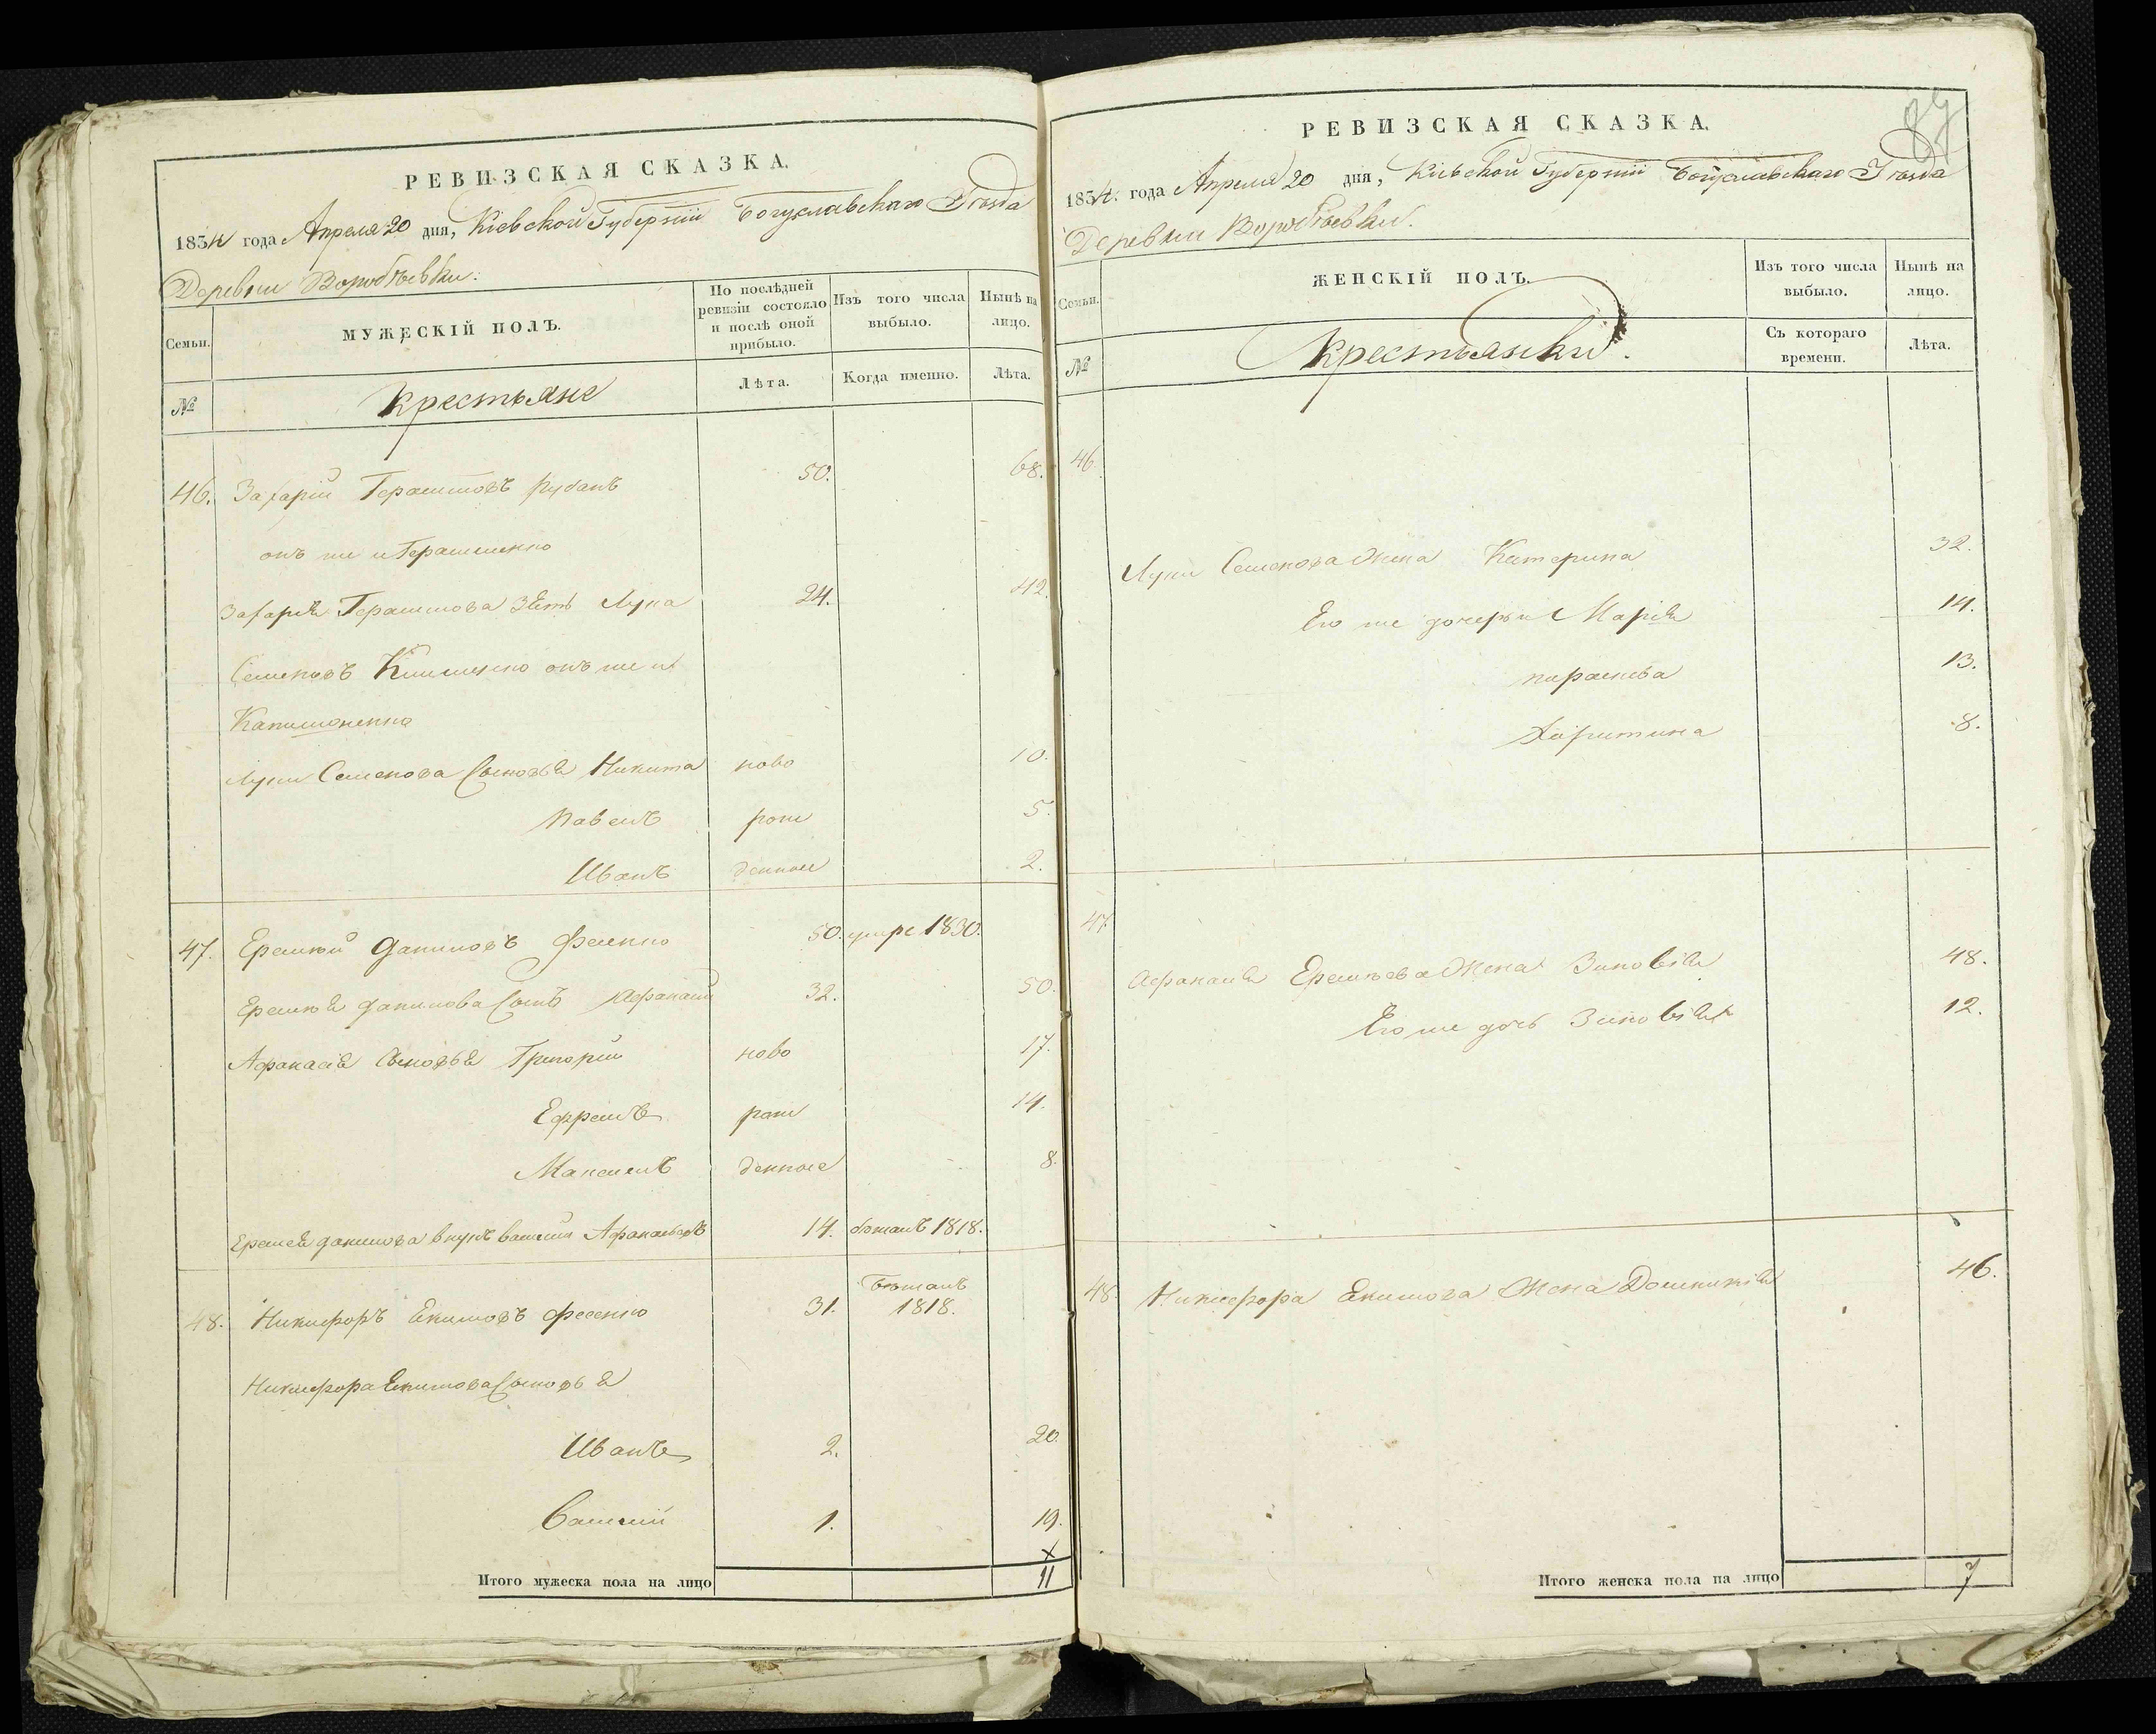 РЕВИЗСКАЯ СКАЗКА.
1834 года Апреля 20 дня, Кіевской Губерніи Богуславскаго Уѣзда
Деревни Воробіевки.
Семьи.
МУЖЕСКІЙ ПОЛЪ.
По послѣдней ревизіи состояло и послѣ оной прибыло.
Изъ того числа выбыло.
Нынѣ на лицо.
№
Крестьяне
Лѣта.
Когда именно.
Лѣта.
46. Захарій Герасимовъ Рубанъ 50. 68.
онъ же и Герасименко
Захарія Герасимова зять Лука 24. 42.
Семеновъ онъ же и
Луки Семенова сыновья Никита ново 10.
Павелъ рож 5.
Иванъ денные 2.
47. Еремѣй Даниловъ Фесенко 50. умре 1830.
Еремѣя Данилова сынъ Афанасій 32. 50.
Афанасія сыновья Григорій ново 17.
Ефремъ рож 14.
Максимъ денные 8.
Еремея Данилова внукъ Василій Афанасьевъ 14. бѣжалъ 1818.
48. Никифоръ Екимовъ Фесенко 31. Бѣжалъ 1818.
Никифора Екимова сыновья
Иванъ 2. 20.
Василій 1. 19.
Итого мужеска пола на лицо 11
87
РЕВИЗСКАЯ СКАЗКА.
1834. года Апреля 20 дня, Кіевской Губерніи Богуславскаго Уѣзда
Деревни Воробіевки.
Семьи.
ЖЕНСКІЙ ПОЛЪ.
Изъ того числа выбыло.
Нынѣ на лицо.
№
Крестьянки.
Съ котораго времени.
Лѣта.
46.
Луки Семенова жена Катерина 32.
Его же дочери Марія 14.
Параскева 13.
Харитина 8.
47.
Афанасія Еремѣева жена Зиновія 48.
Его же дочь Зиновія 12.
48. Никифора Екимова жена Доминикія 46.
Итого женска пола на лицо 7